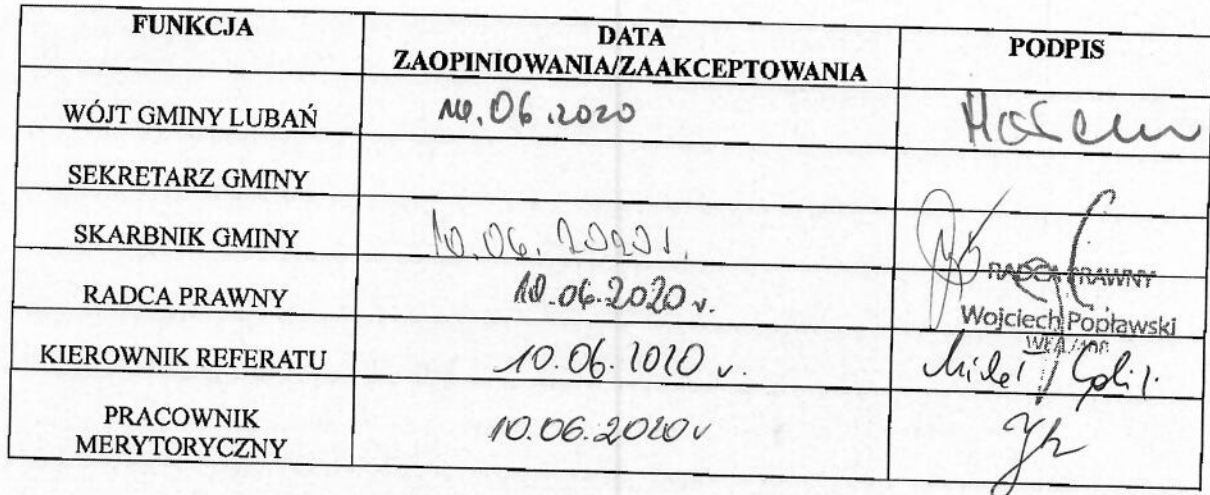 FUNKCJA
DATA
ZAOPINIOWANIA/ZAAKCEPTOWANIA
PODPIS
WÓJT GMINY LUBAŃ
10.06.2020
SEKRETARZ GMINY
SKARBNIK GMINY
10.06.2020r.
RADCA PRAWNY
10.06.2020 r.
RADCA PRAWNY
Wojciech Popławski
KIEROWNIK REFERATU
10.06.2020 r.
PRACOWNIK
MERYTORYCZNY
10.06.2020r